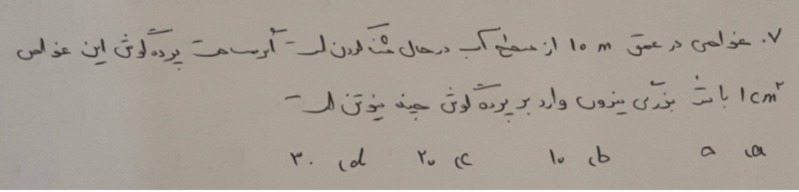 ۷. غواصی در عمق ۱۰ m از سطح آب در حال شنا کردن است اگر مساحت پرده گوش این غواص
۱ cm² باشد بزرگی نیروی وارد بر پرده گوش چند نیوتن است
a) ۵ b) ۱۰ c) ۲۰ d) ۳۰